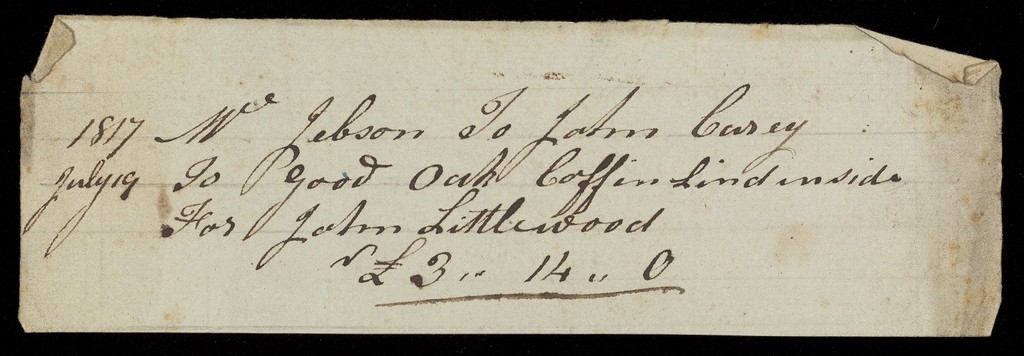 1817 Mr Jebson To John Carey
July 19 To Good Oak Coffin Lind inside
For John Littlewood
£ 3 ,, 14 ,, 0